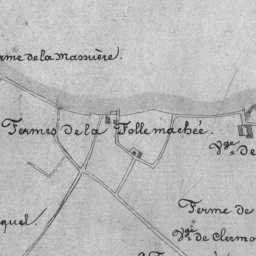 rme de la Massière.
Fermes de la Folle machée.
Vge de
Ferme de
quel.
Vge de Clermo